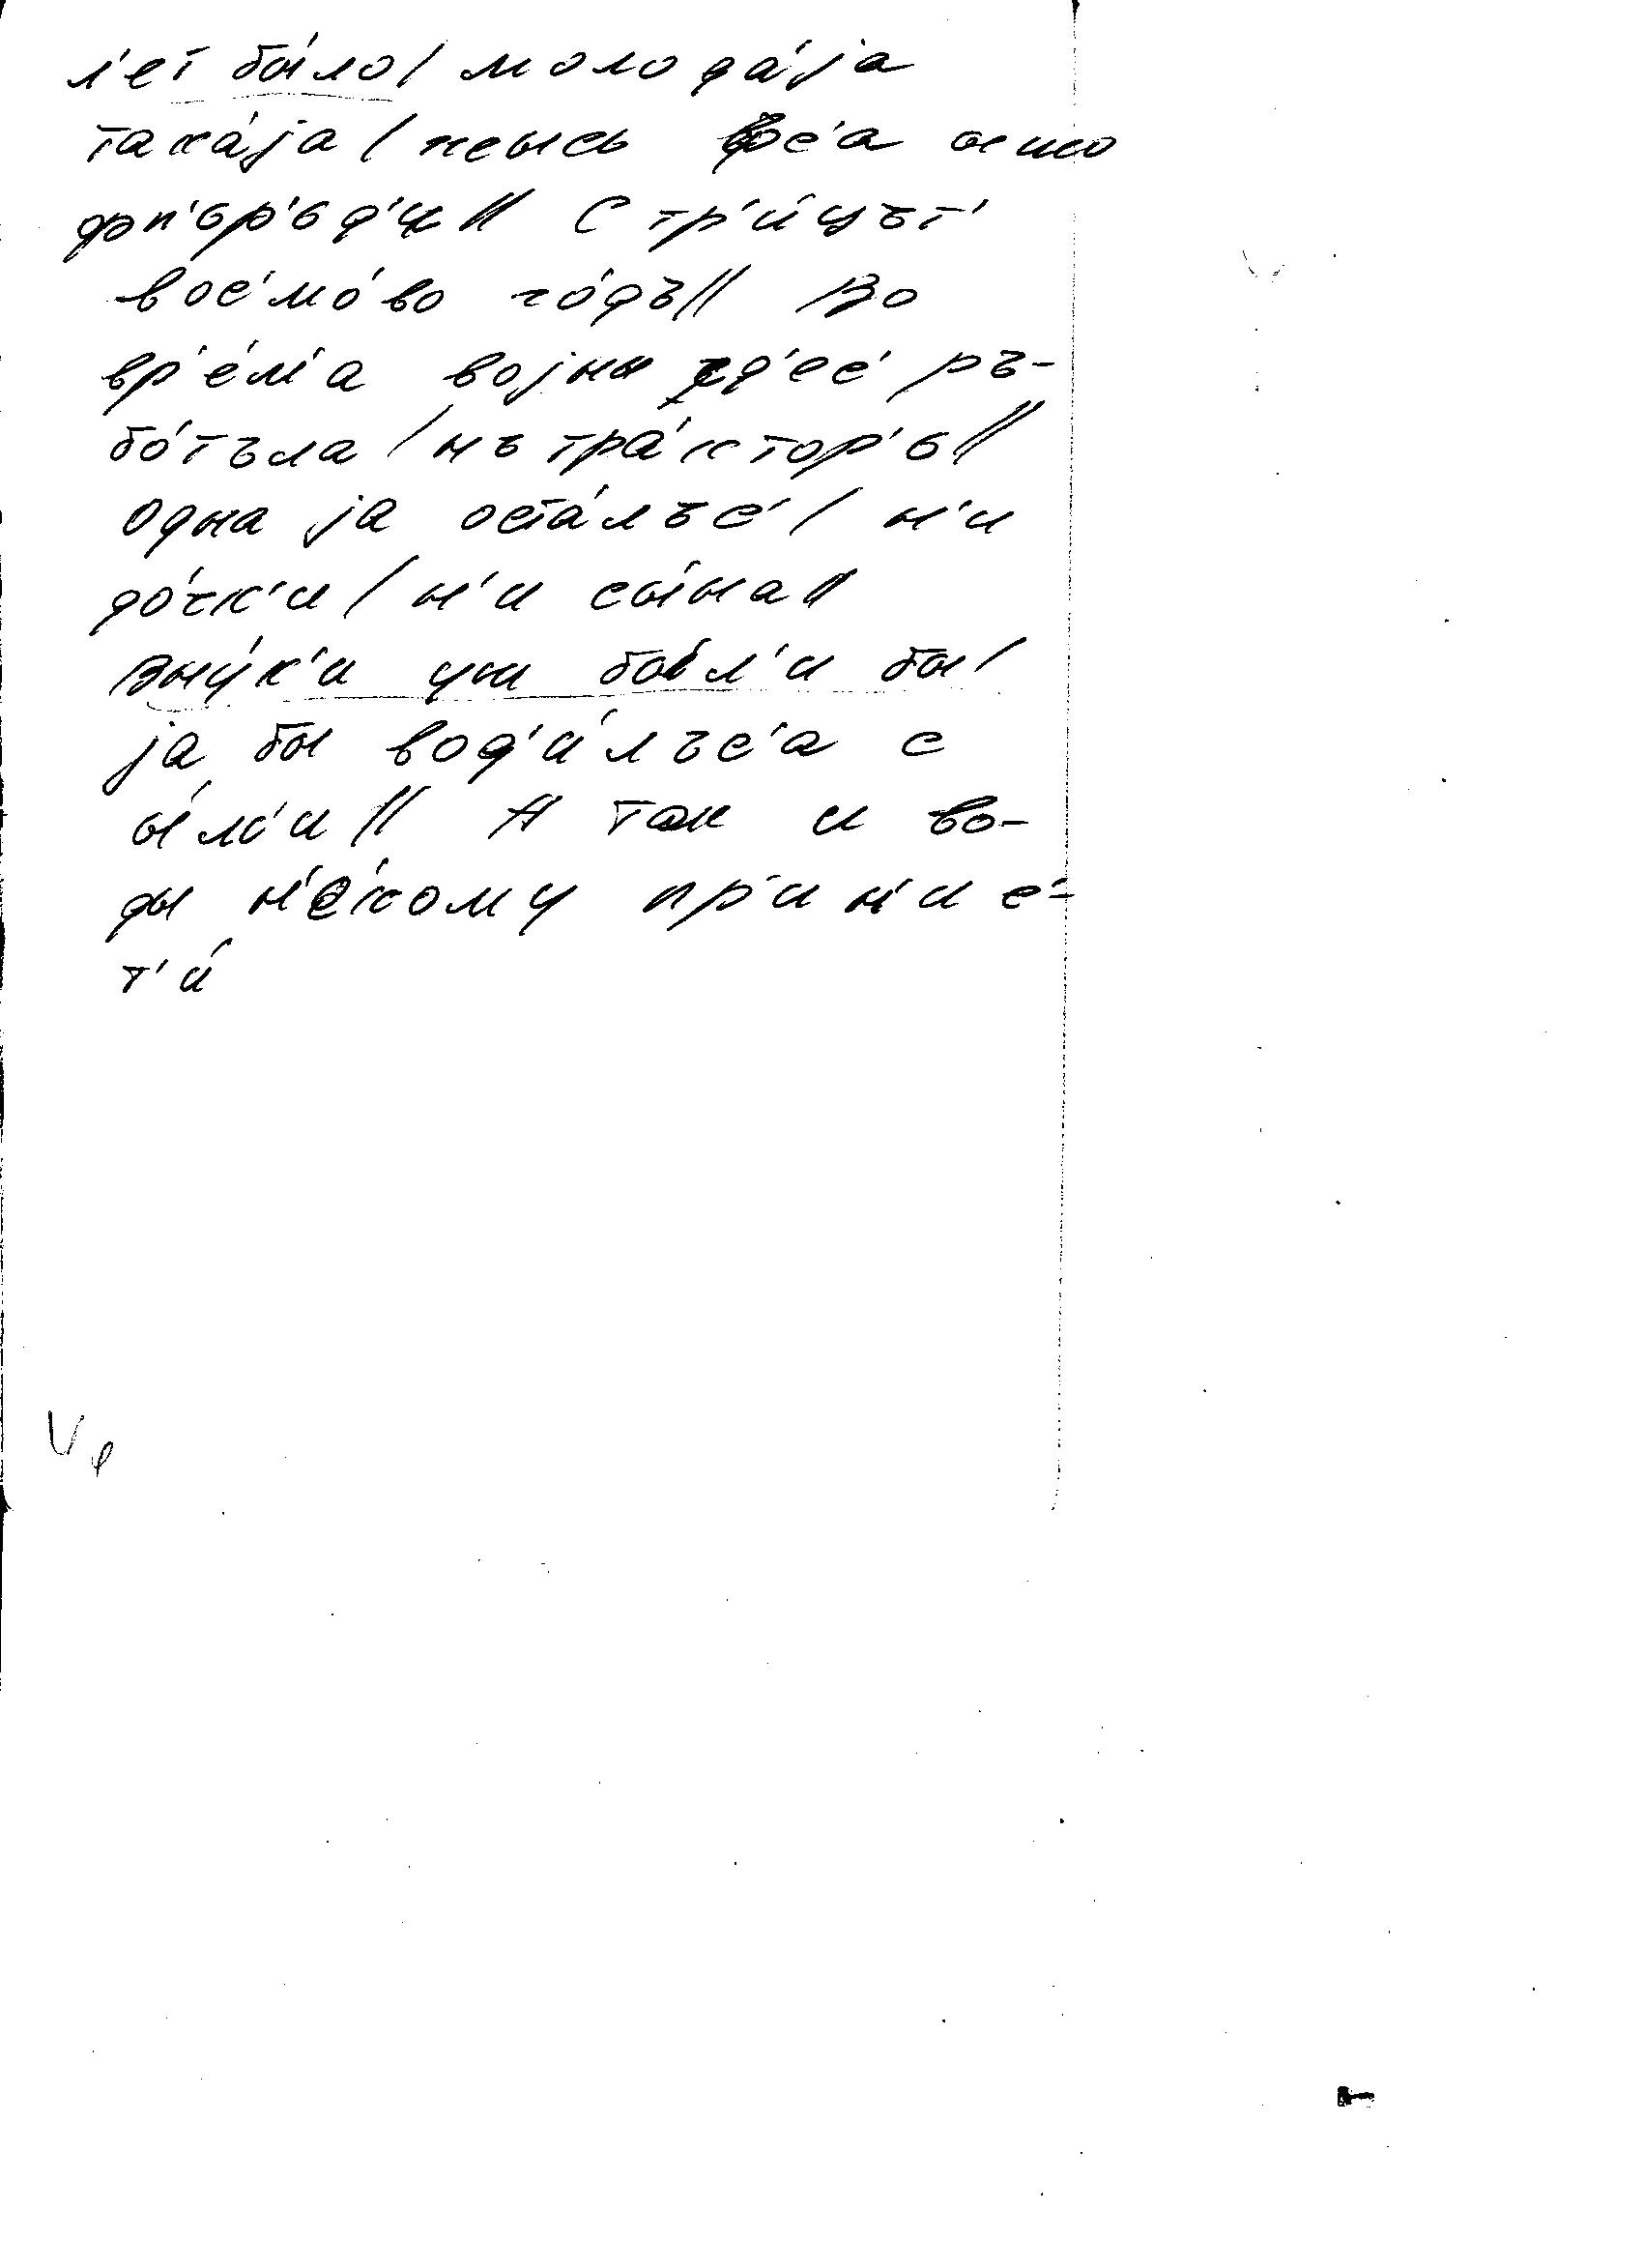 л'ет бы́ло / молода́jа
така́jа / жысь фс'а ишо
фп'ър'ьд'и // С тр'и́цът'
вос'мо́во го́дъ // Во
вр'е́м'а воjны зд'ес' ръ-
бо́тъла / нъ тра́ктор'ь //
Одна jа оста́лъс' / н'и
до́чк'и / н'и сы́на //
Вну́к'и уш бы́л'и бы /
jа бы вод'и́лъс'а с
ы́м'и // А так и во-
ды н'е́кому пр'ин'ис'-
т'и́